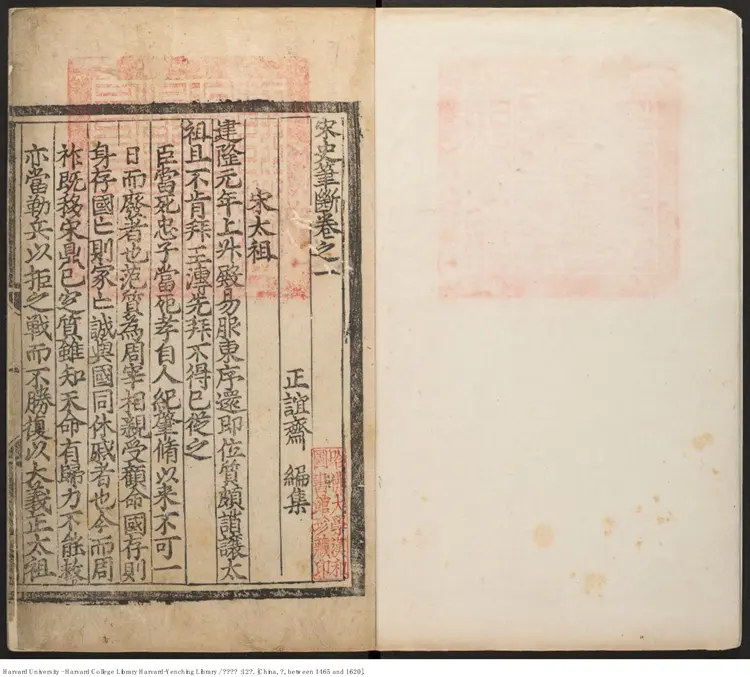 宋史筆斷卷之一
正誼齋 編集
宋太祖
建隆元年上升殿易服東序還即位質頗誚讓太
祖且不肯拜王溥先拜不得已從之
臣當死忠子當死孝自人紀肇脩以來不可一
日而廢者也范質為周宰相親受顧命國存則
身存國亡則家亡誠與國同休戚者也今而周
祚既移宋鼎已定質雖知天命有歸力不能救
亦當勒兵以拒之戰而不勝復以大義正太祖
哈佛大學漢和
圖書館珍藏印
Harvard University - Harvard College Library Harvard-Yenching Library / ???? :12?. [China, ?, between 1465 and 1620].